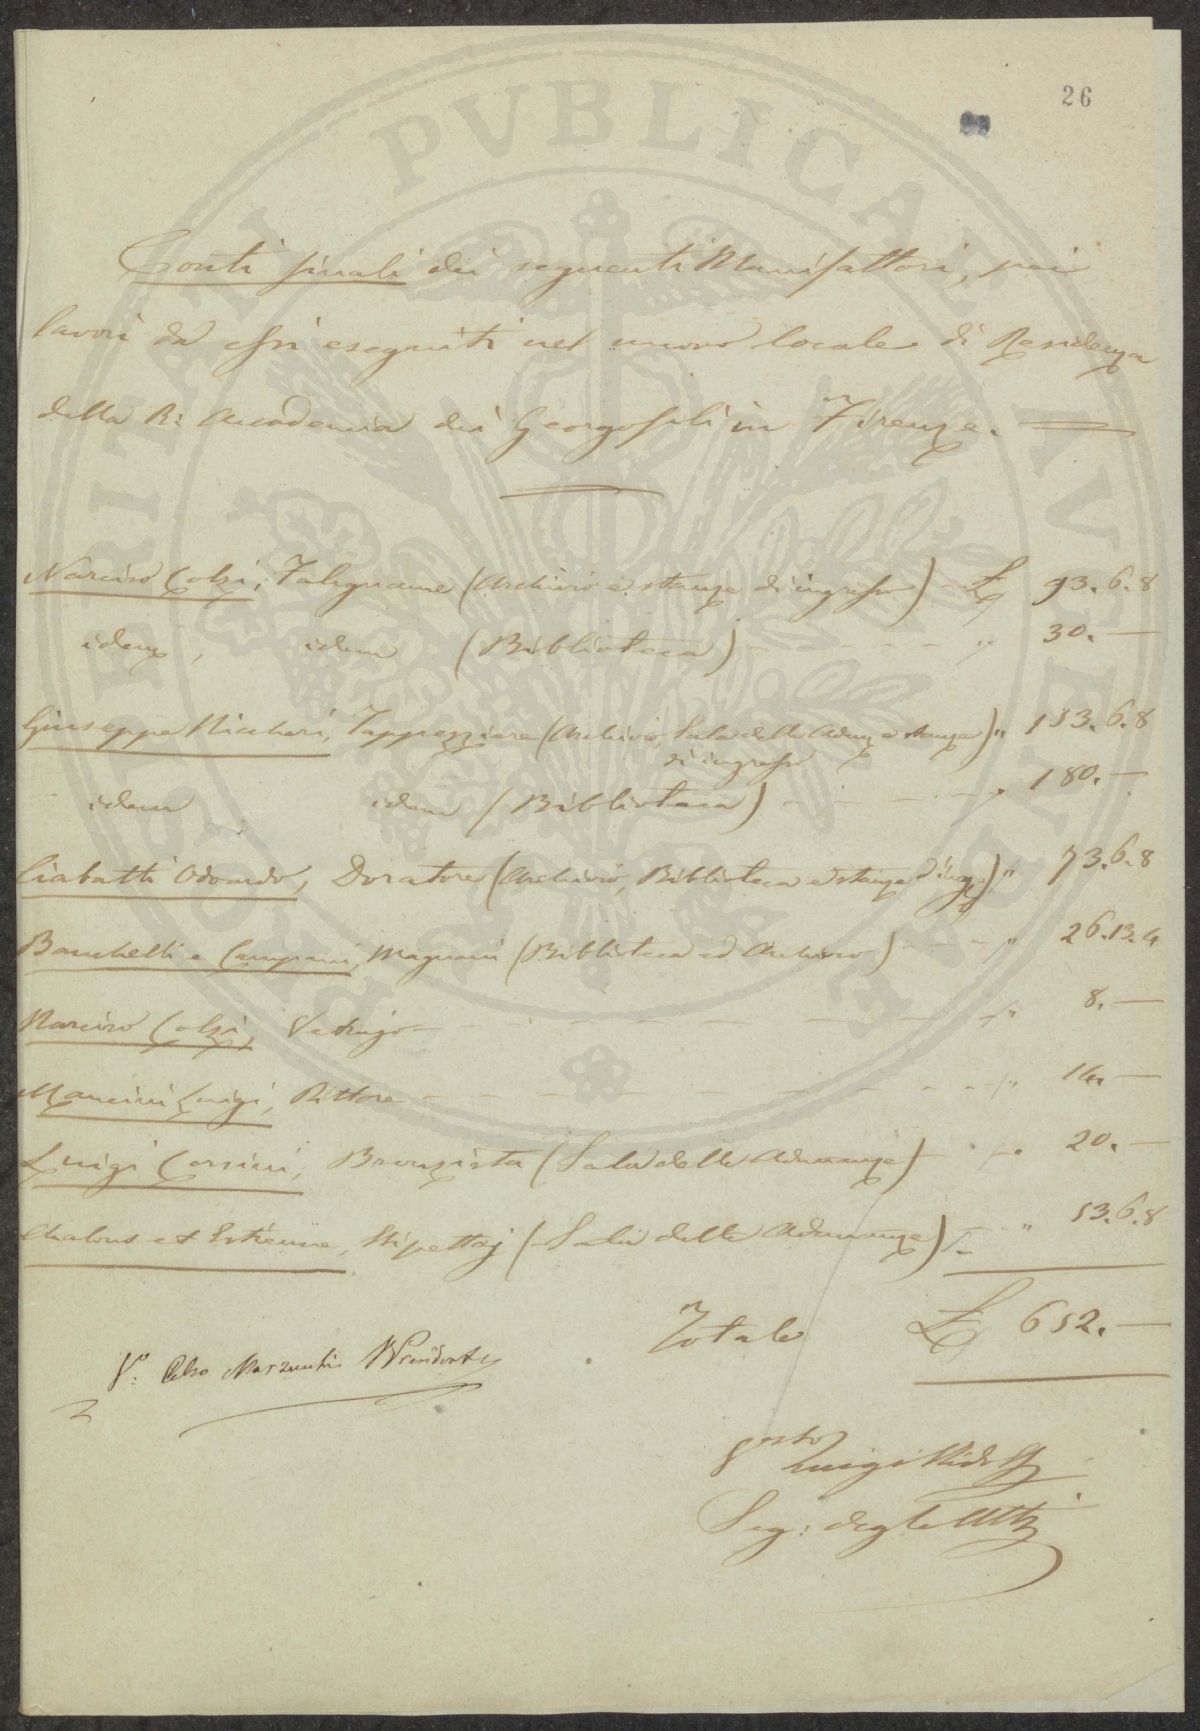 26
Conti finali dei seguenti Manifattori, pei
lavori da essi eseguiti nel nuovo locale di Residenza
della R: Accademia dei Georgofili in Firenze.
Narciso Colzi, Falegname (Archivio e stanze di ingresso) £ 93.6.8
idem, idem (Biblioteca) " 30.—
Giuseppe, Tappezziere (Archivio, Sala delle Adunz e stanze) " 153.6.8
di ingresso
idem idem (Biblioteca) " 180.—
Ciabatti Odoardo, Doratore (Archivio, Biblioteca e stanze d'ing.) " 73.6.8
Banchelli e Campani, Magnani (Biblioteca ed Archivio) " 26.13.4
Narciso Colzi, Vetrajo " 8.—
Mancini Luigi, Pittore " 14.—
Luigi Corsini, Bronzista (Sala delle Adunanze) " 20.—
Chalons et Estienne, Stipettaj (Sala delle Adunanze) " 53.6.8
Totale £ 652.—
V.º Celso Marzucchi VPresidente
Visto Luigi Ridolfi
Seg: degli Atti
PVBLICAE